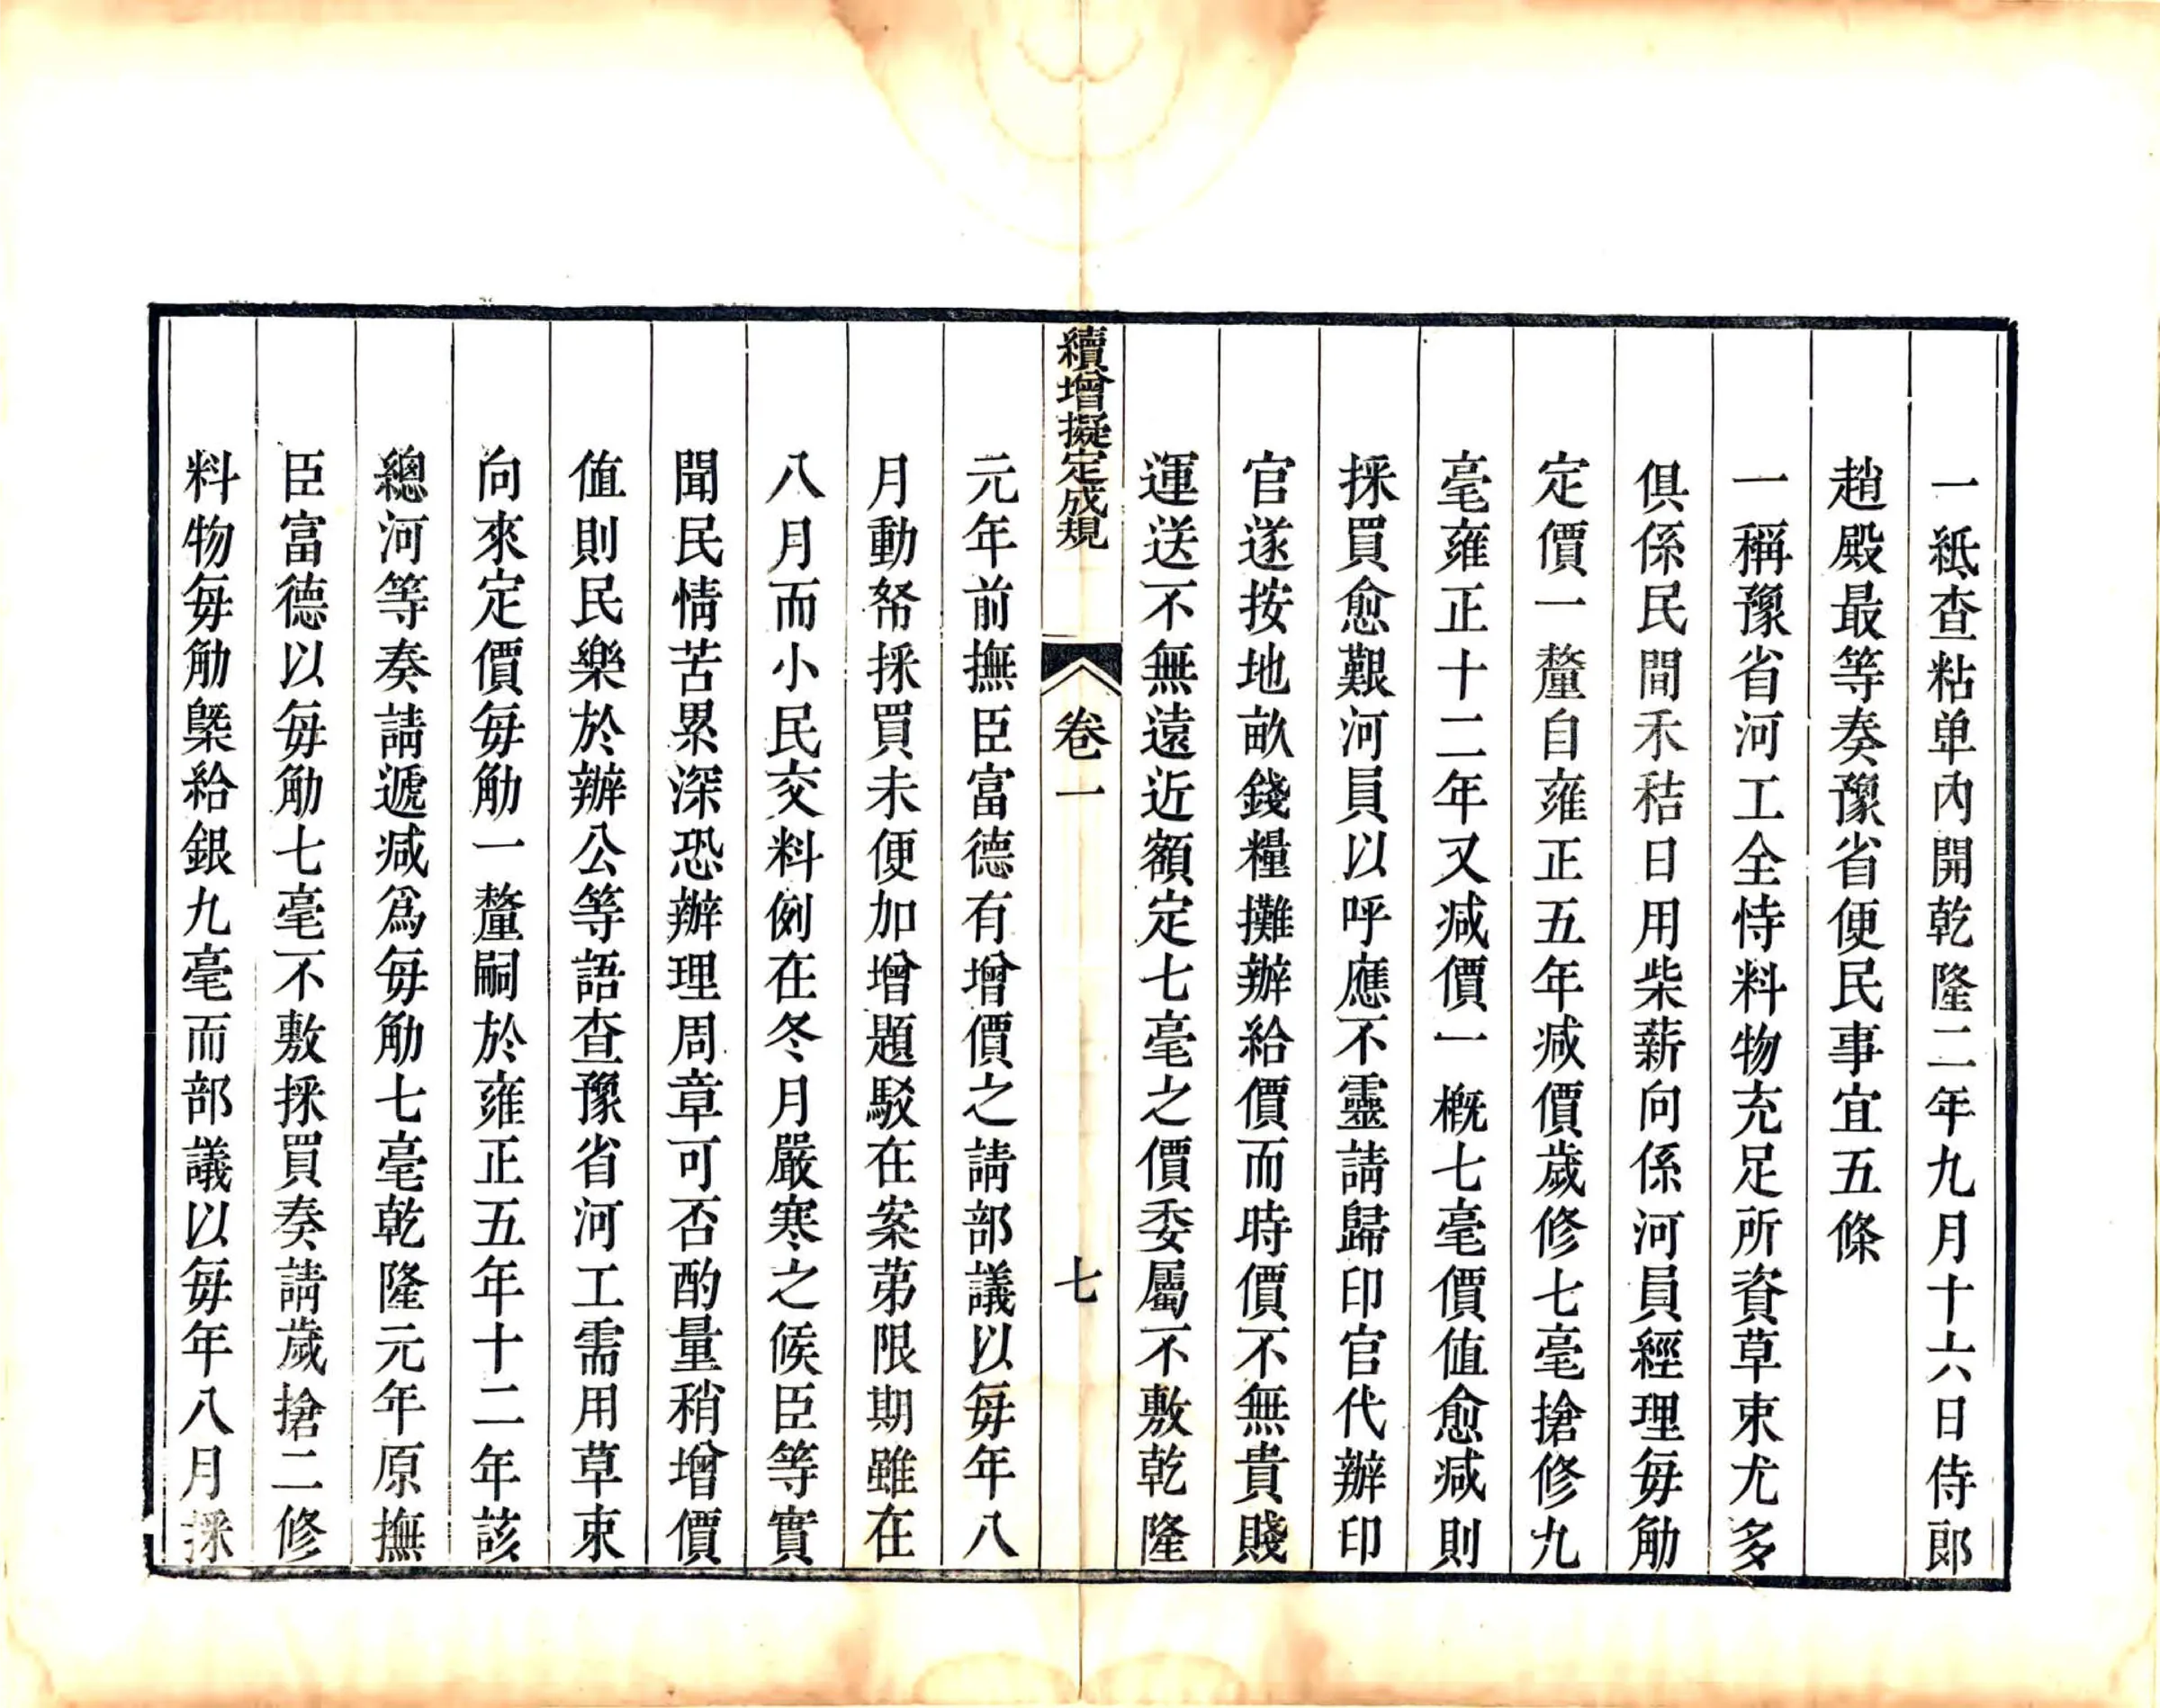 一紙查粘单內開乾隆二年九月十六日侍郎
趙殿最等奏豫省便民事宜五條
一稱豫省河工全恃料物充足所資草束尤多
俱係民間禾秸日用柴薪向係河員經理每觔
定價一釐自雍正五年减價歲修七毫搶修九
毫雍正十二年又减價一概七毫價值愈减則
採買愈艱河員以呼應不靈請歸印官代辦印
官遂按地畝錢糧攤辦給價而時價不無貴賤
運送不無遠近額定七毫之價委屬不敷乾隆
續增擬定成規 卷一 七
元年前撫臣富德有增價之請部議以每年八
月動帑採買未便加增題駁在案苐限期雖在
八月而小民交料例在冬月嚴寒之候臣等實
聞民情苦累深恐辦理周章可否酌量稍增價
值則民樂於辦公等語查豫省河工需用草束
向來定價每觔一釐嗣於雍正五年十二年該
總河等奏請遞减爲每觔七毫乾隆元年原撫
臣富德以每觔七毫不敷採買奏請歲搶二修
料物每觔槩給銀九毫而部議以每年八月採